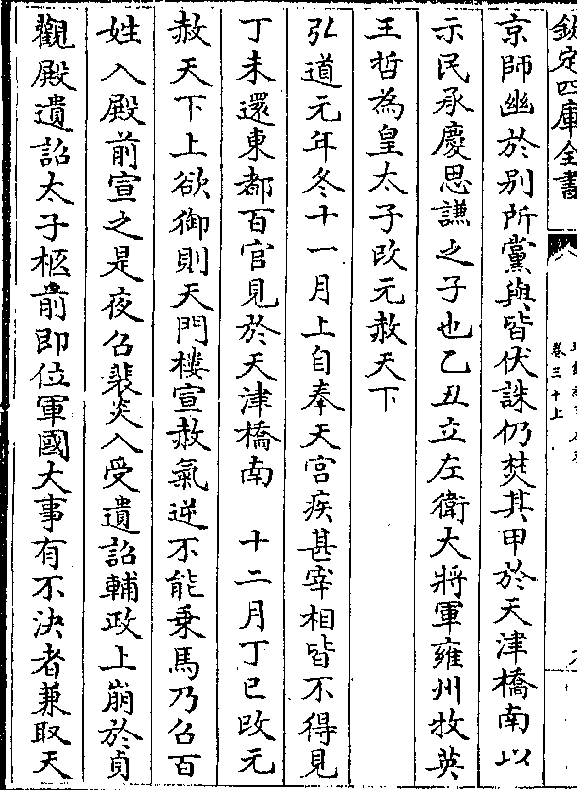 欽定四庫全書
卷三十上
京師幽於别所黨與皆伏誅仍焚其甲於天津橋南以
示民承慶思謙之子也乙丑立左衛大將軍雍州牧英
王哲為皇太子改元赦天下
弘道元年冬十一月上自奉天宫疾甚宰相皆不得見
丁未還東都百官見於天津橋南　十二月丁巳改元
赦天下上欲御則天門樓宣赦氣逆不能乗馬乃召百
姓入殿前宣之是夜召裴炎入受遺詔輔政上崩於貞
觀殿遺詔太子柩前即位軍國大事有不決者兼取天